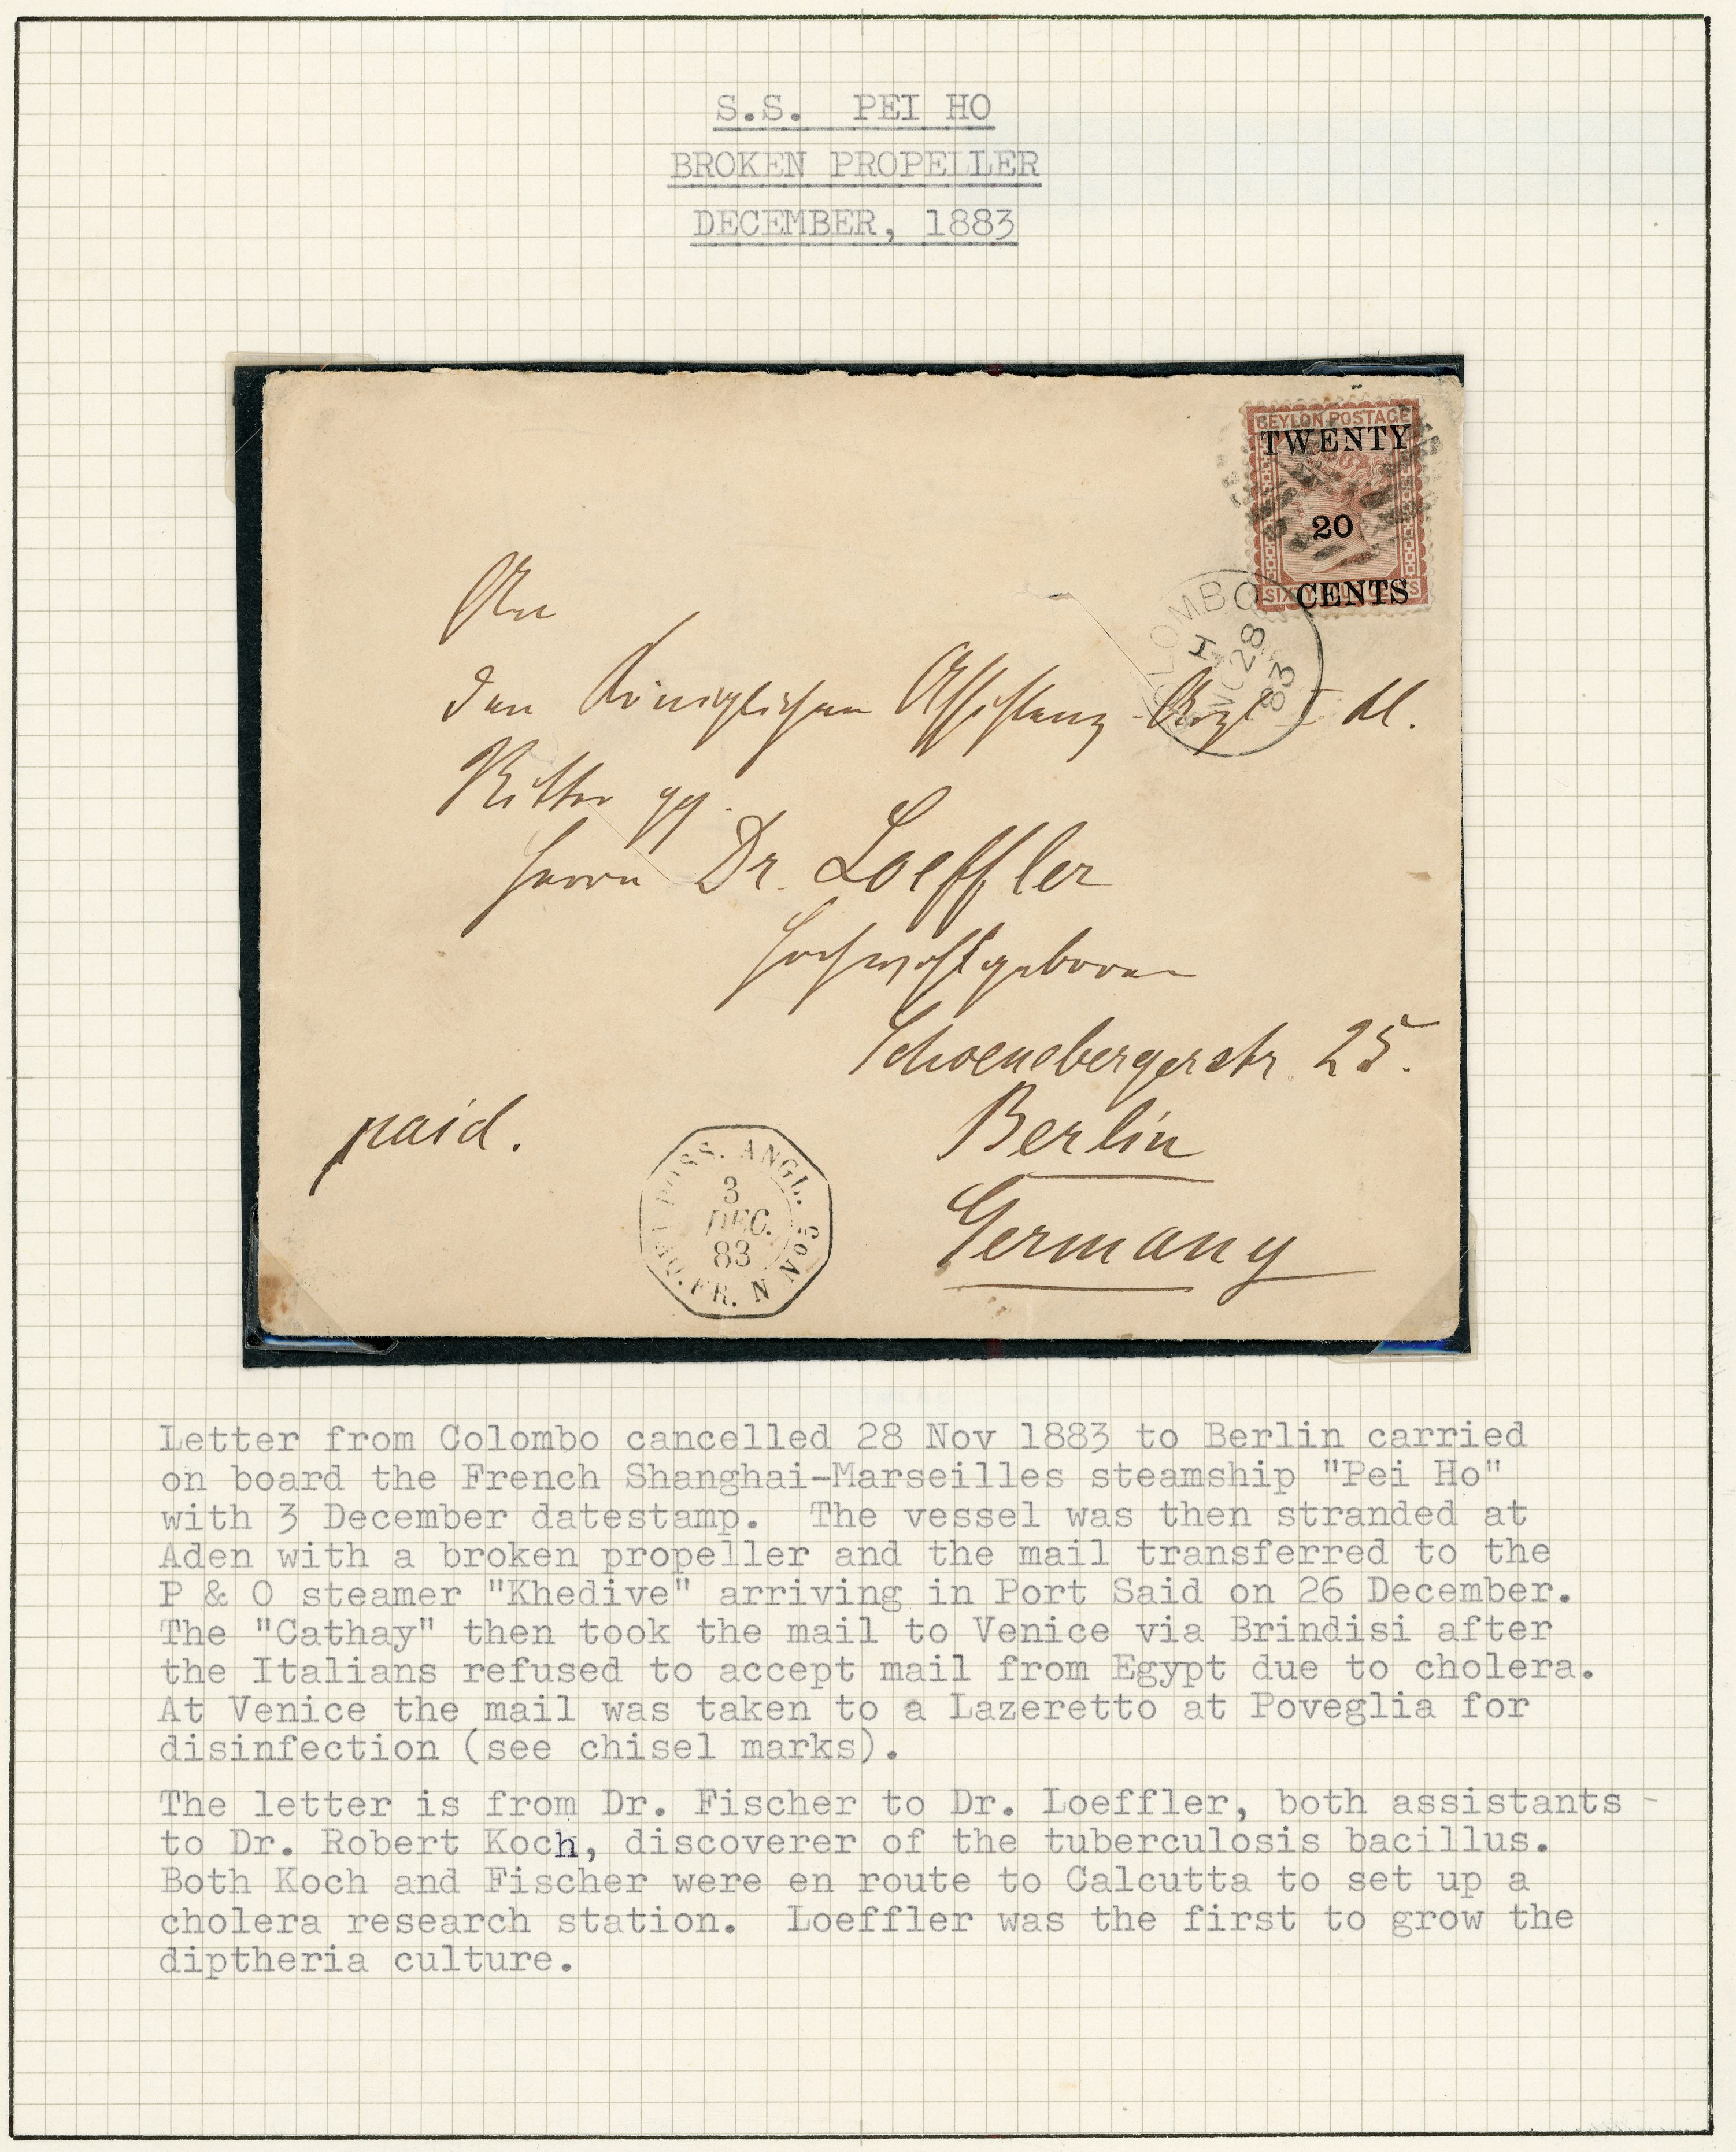 S.S. PEI HO
BROKEN PROPELLER
DECEMBER, 1883
CEYLON POSTAGE
TWENTY
20
CENTS
COLOMBO
H
NO 28
83
An
den Königlichen Assistenz-Arzt I Kl.
Ritter pp.
Herrn Dr. Loeffler
Hochwohlgeboren
Schoenebergerstr. 25.
Berlin
Germany
paid.
POSS. ANGL.
3
DEC.
83
PAQ. FR. N No5
Letter from Colombo cancelled 28 Nov 1883 to Berlin carried
on board the French Shanghai-Marseilles steamship "Pei Ho"
with 3 December datestamp. The vessel was then stranded at
Aden with a broken propeller and the mail transferred to the
P & O steamer "Khedive" arriving in Port Said on 26 December.
The "Cathay" then took the mail to Venice via Brindisi after
the Italians refused to accept mail from Egypt due to cholera.
At Venice the mail was taken to a Lazeretto at Poveglia for
disinfection (see chisel marks).
The letter is from Dr. Fischer to Dr. Loeffler, both assistants -
to Dr. Robert Koch, discoverer of the tuberculosis bacillus.
Both Koch and Fischer were en route to Calcutta to set up a
cholera research station. Loeffler was the first to grow the
diptheria culture.